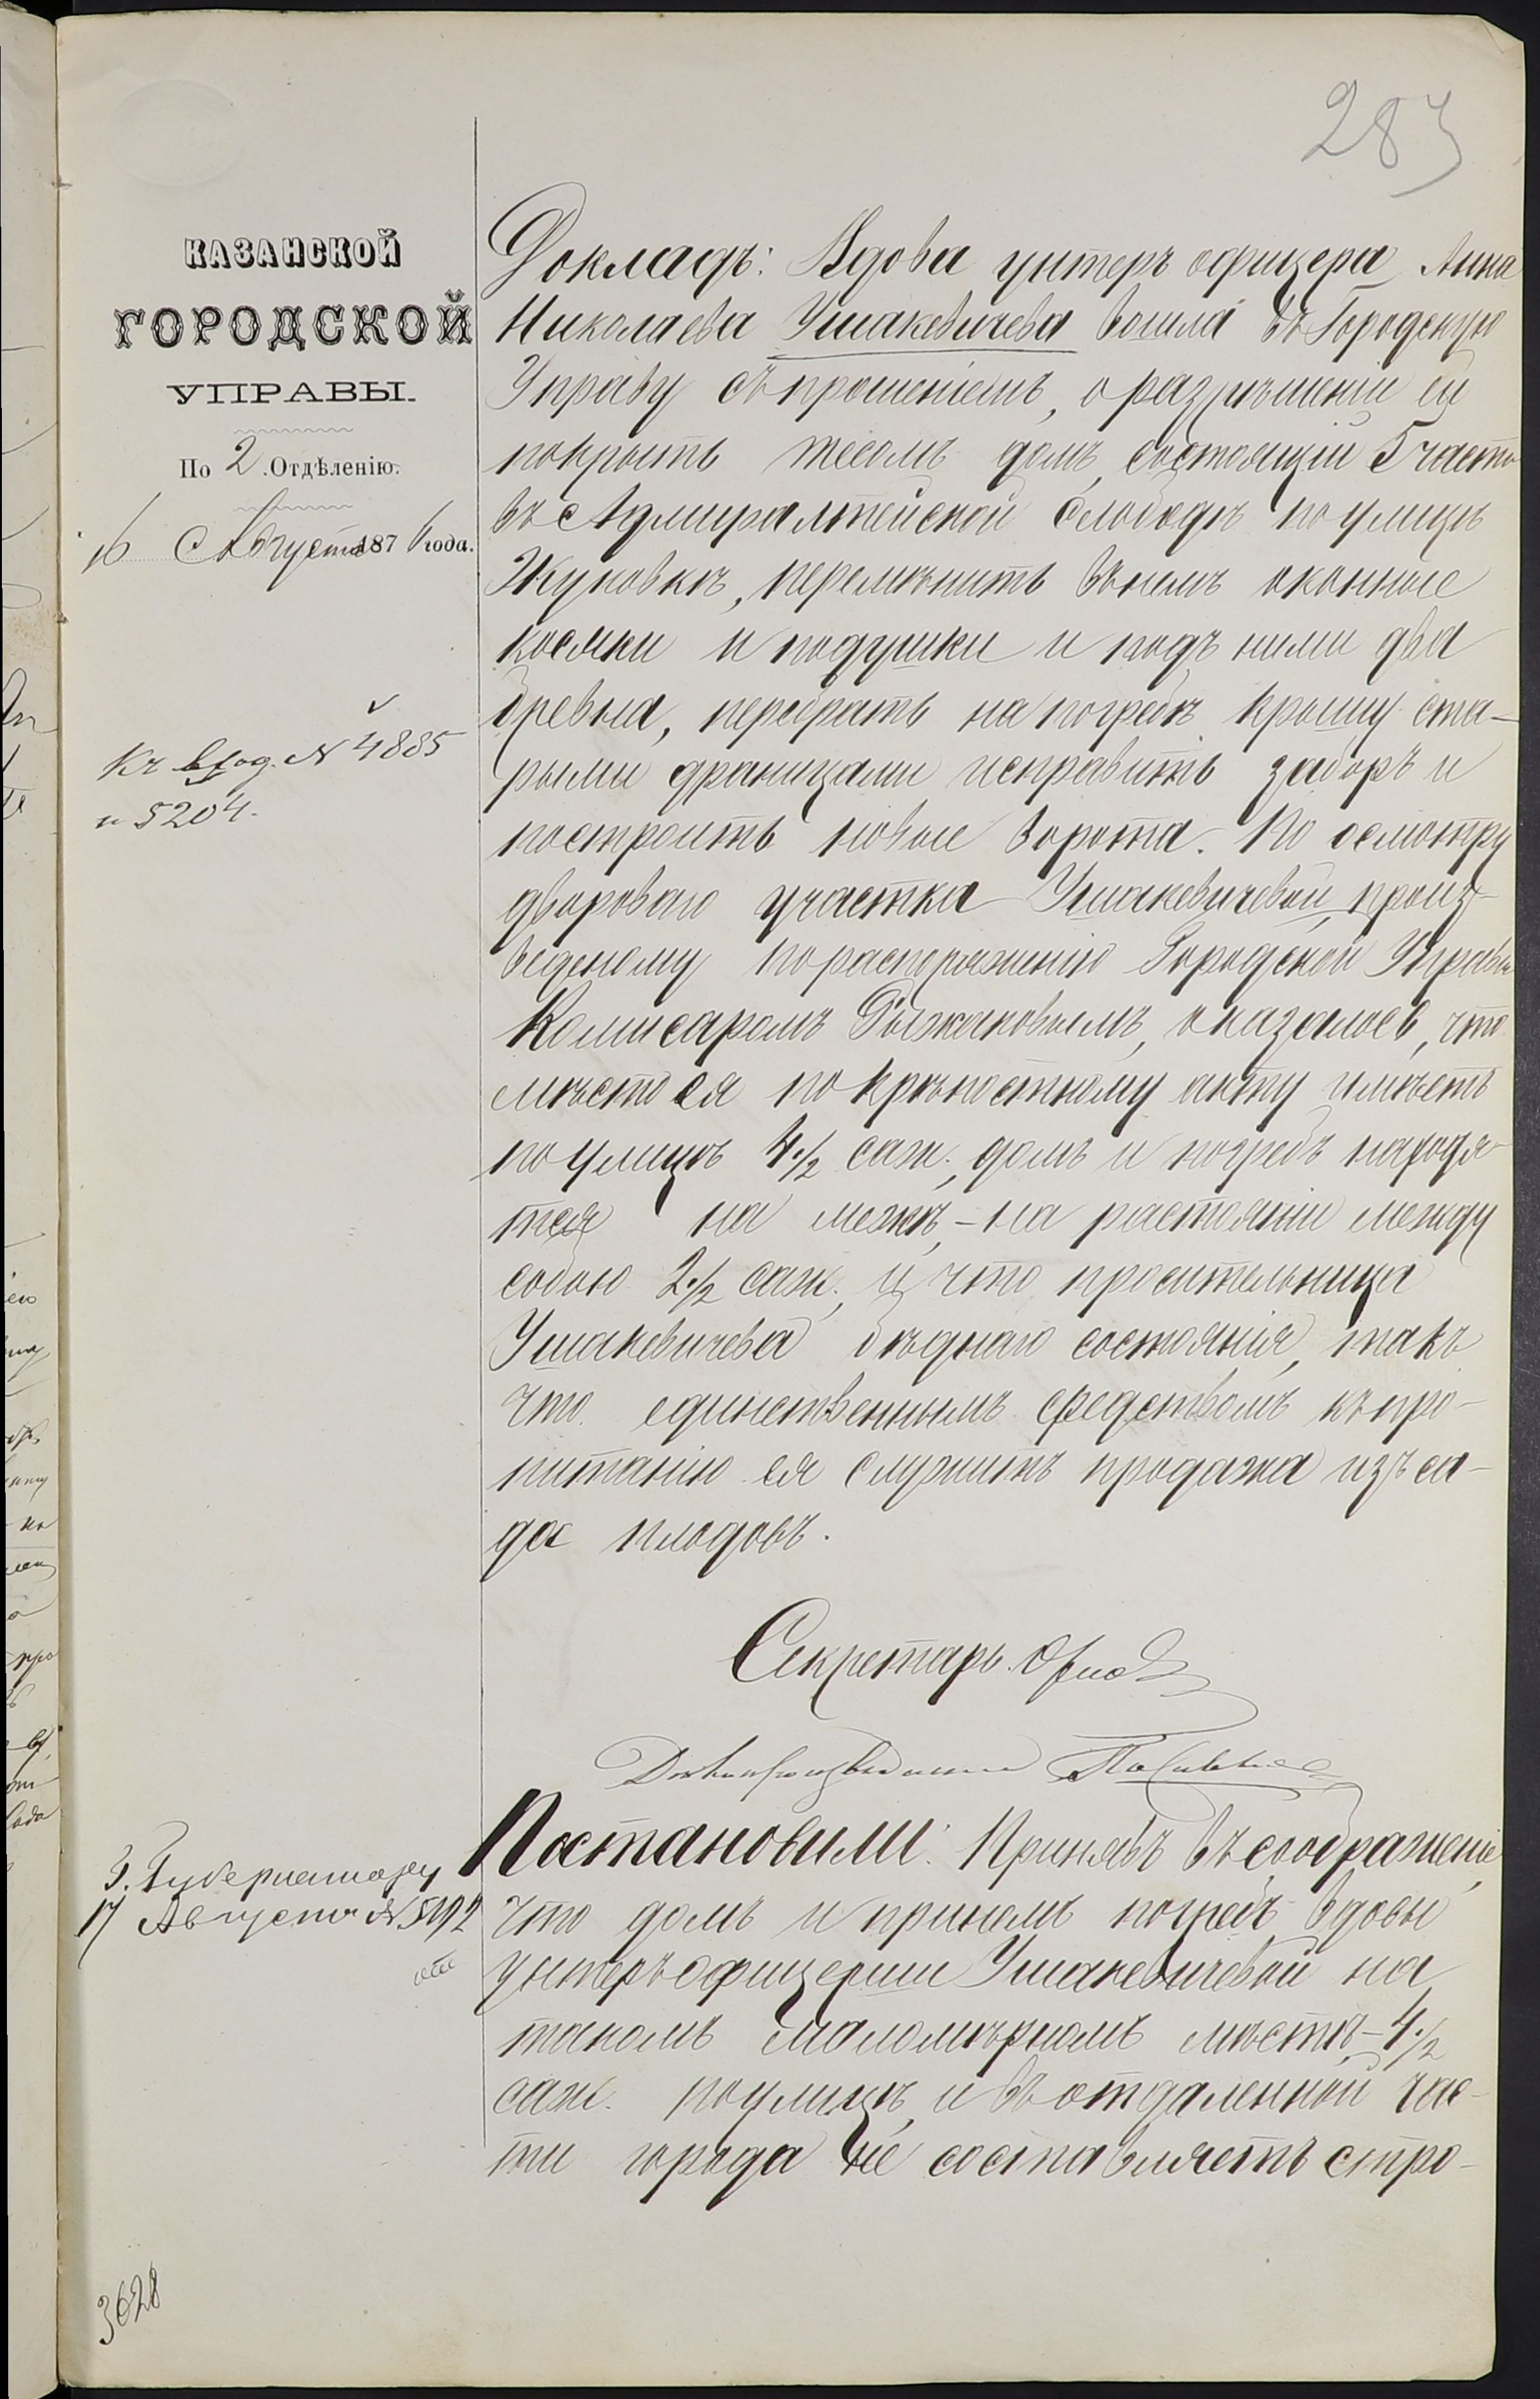 283
КАЗАНСКОЙ
ГОРОДСКОЙ
УПРАВЫ.
По 2 Отдѣленію.
16 Августа 1876 года.
Къ вход. № 4885
и 5204.
Докладъ: Вдова унтеръ офицера Анна
Николаева Ушакевичева вошла въ Городскую
Управу съ прошеніемъ, о разрѣшеніи ей
покрыть тесомъ домъ, состоящій 5 части
въ Адмиралтейской слободѣ по улицѣ
Жуковкѣ, перемѣнить въ немъ оконные
косяки и подушки и подъ ними два
бревна, перебрать на погребѣ крышу ста-
рыми драницами исправить заборъ и
построить новые ворота. По осмотру
дворового участка Ушакевичевой, произ-
веденому по распоряженію Городской Управы
Комисаромъ Рыжаковымъ, оказалось, что
мѣсто ея по крѣпостному акту имѣетъ
по улицѣ 4 1/2 саж., домъ и погребъ находя-
тся на межѣ, - на растояніи между
собою 2 1/2 саж., и что просительница
Ушакевичева бѣднаго состоянія, такъ
что единственнымъ средствомъ къ про-
питанію ея служитъ продажа изъ са-
да плодовъ.
Секретарь
Дѣлопроизводитель
Постановили: Принявъ въ соображеніе,
что домъ и при немъ погребъ вдовы
унтеръ офицерши Ушакевичевой на
такомъ маломѣрномъ мѣстѣ - 4 1/2
саж. по улицѣ, и въ отдаленной час-
ти города не составляетъ стро-
Г. Губернатору
17 Августа № 5192
3628